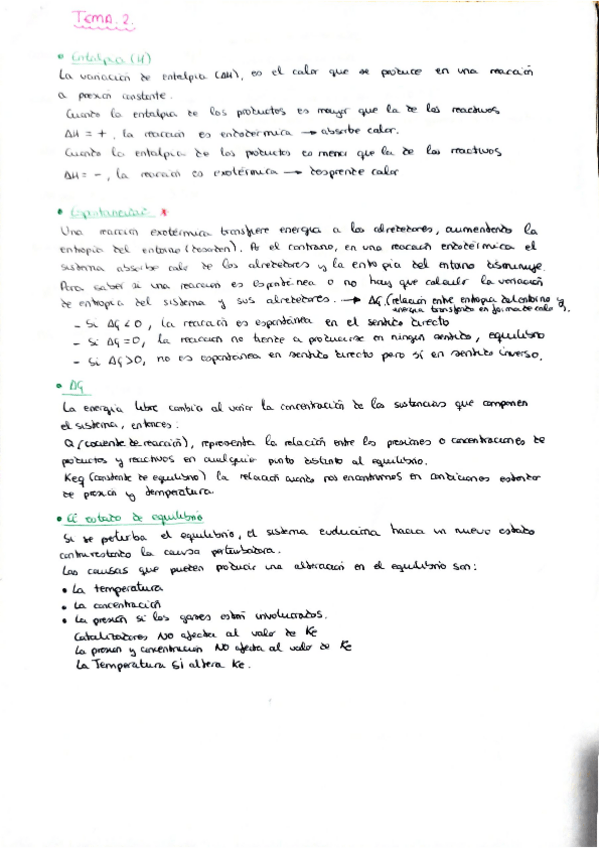 TEMA.2.
• Entalpia (H)
La variación de entalpia (ΔH), es el calor que se produce en una reacción
a presión constante.
Cuando la entalpia de los productos es mayor que la de los reactivos
ΔH = +, la reacción es endotérmica → absorbe calor.
Cuando la entalpia de los productos es menor que la de los reactivos
ΔH = -, la reacción es exotérmica → desprende calor
• Espontaneidad *
Una reacción exotérmica transfiere energía a los alrededores, aumentando la
entropia del entorno (desorden). Por el contrario, en una reacción endotérmica el
sistema absorbe calor de los alrededores y la entropia del entorno disminuye.
Para saber si una reacción es espontánea o no hay que calcular la variación
de entropia del sistema y sus alrededores. → ΔG (relación entre entropia del entorno y
energia transferida en forma de calor Q).
- Si ΔG<0, la reacción es espontánea en el sentido directo
- Si ΔG=0, la reacción no tiende a producirse en ningún sentido, equilibrio
- Si ΔG>0, no es espontanea en sentido directo pero sí en sentido inverso.
• ΔG
La energia libre cambia al variar la concentración de las sustancias que componen
el sistema, entonces:
Q (cociente de reacción), representa la relación entre las presiones o concentraciones de
productos y reactivos en cualquier punto distinto al equilibrio.
Keq (constante de equilibrio) la relación cuando nos encontramos en condiciones estándar
de presión y temperatura
• estado de equilibrio
Si se perturba el equilibrio, el sistema evoluciona hacia un nuevo estado
contrarrestando la causa perturbadora.
Las causas que pueden producir una alteración en el equilibrio son:
• La temperatura
• La concentración
• La presión si los gases están involucrados.
Catalizadores NO afecta al valor de Kc
La presion y concentración NO afecta al valor de Kc
La Temperatura Si altera Kc.